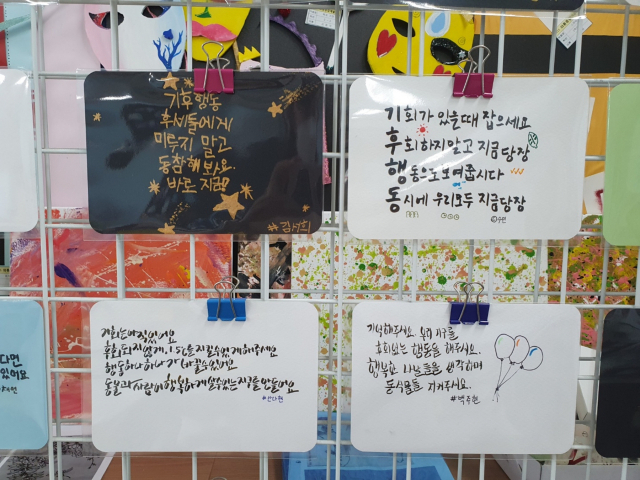 기후행동
후세들에게
미루지 말고
동참해봐요.
바로 지금!
#김서희
기회가 있을때 잡으세요
후회하지말고 지금당장
행동으로보여줍시다
동시에 우리모두 지금당장
기회는아직있어요
후회되지않게 1.5도를지킬수있게해주세요
행동하나하나가 바뀔수있어요
동물과사람이행복하게살수있는지구를만들어요
#선다현
기억해주세요. 우리 지구를
후회없는 행동을 해주세요.
행복한 나날들을 생각하며
동식물들 지켜주세요.
#박주현
다면
있어요